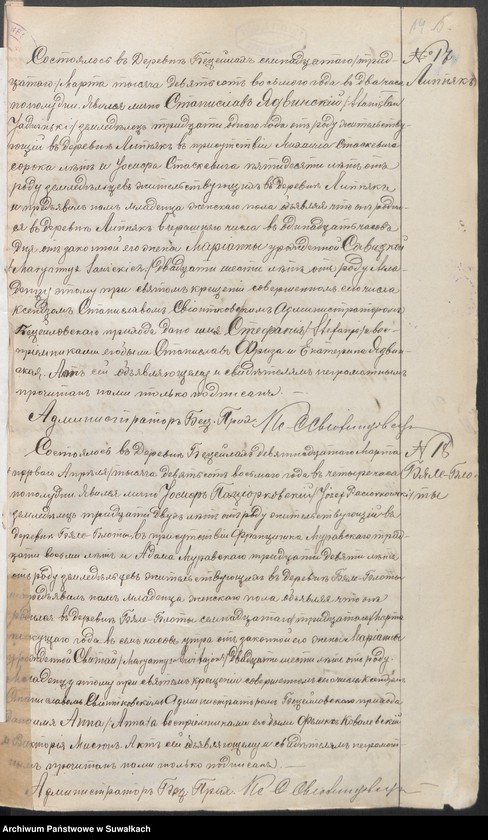 № 17
Липняк
Состоялось въ деревнѣ Бецейлахъ семнадцатаго/трид-
цатаго/Марта тысяча девятьсотъ восьмого года въ два часа
пополудни. Явился лично Станиславъ Ядвинскій /Stanisław
земледѣлецъ тридцати одного года отъ роду жительству-
ющій въ деревнѣ Липнякъ въ присутствіи Стаскевича
сорока лѣтъ и Іосифа Стаскевича пятидесяти лѣтъ отъ
роду земледѣльцевъ жительствующихъ въ деревнѣ Липнякъ
и предъявилъ намъ младенца женскаго пола объявляя что онъ родил-
ся въ деревнѣ Липнякъ вчерашняго числа въ одинадцать часовъ
дня отъ законной его жены Маріанны урожденной Савицкой
двадцати шести лѣтъ отъ роду. Мла-
денцу этому при святомъ крещеніи совершенномъ сего числа
ксендзомъ Станиславомъ Свентковскимъ Администраторомъ
Бецейловскаго прихода дано имя Стефанія /Stefania/ а вос-
пріемниками его были Станиславъ и Екатерина Ядвин-
ская. Актъ сей объявляющему и свидѣтелямъ неграмотнымъ
прочитанъ нами только подписанъ.
Администраторъ Бец. Прих. Кс. С
№ 18
Бяле-Бло-
ты
Состоялось въ деревнѣ Бецейлахъ девятнадцатаго Марта
/перваго Апрѣля/ тысяча девятьсотъ восьмого года въ четыре часа
пополудни. Явился лично Іосифъ /Józef
земледѣлецъ тридцати двухъ лѣтъ отъ роду жительствующій въ
деревнѣ Бяле-Блоты въ присутствіи Францишка Муравскаго трид-
цати восьми лѣтъ и Адама Муравскаго тридцати девяти лѣтъ
отъ роду земледѣльцевъ жительствующихъ въ деревнѣ Бяле-Блоты
и предъявилъ намъ младенца женскаго пола объявляя что онъ
родился въ деревнѣ Бяле-Блоты семнадцатаго/тридцатаго/Марта
текущаго года въ семь часовъ утра отъ законной его жены Маріанны
урожденной двадцати шести лѣтъ отъ роду.
Младенцу этому при святомъ крещеніи совершенномъ сего числа Ксендзомъ
Станиславомъ Свентковскимъ Администраторомъ Бецейловскаго прихода
дано имя Анна /Anna/ а воспріемниками его были Феликсъ Ковалевскій
и Викторія Актъ сей объявляющему и свидѣтелямъ неграмот-
нымъ прочитанъ нами только подписанъ.
Администраторъ Бец. Прих. Кс. С
Archiwum Państwowe w Suwałkach